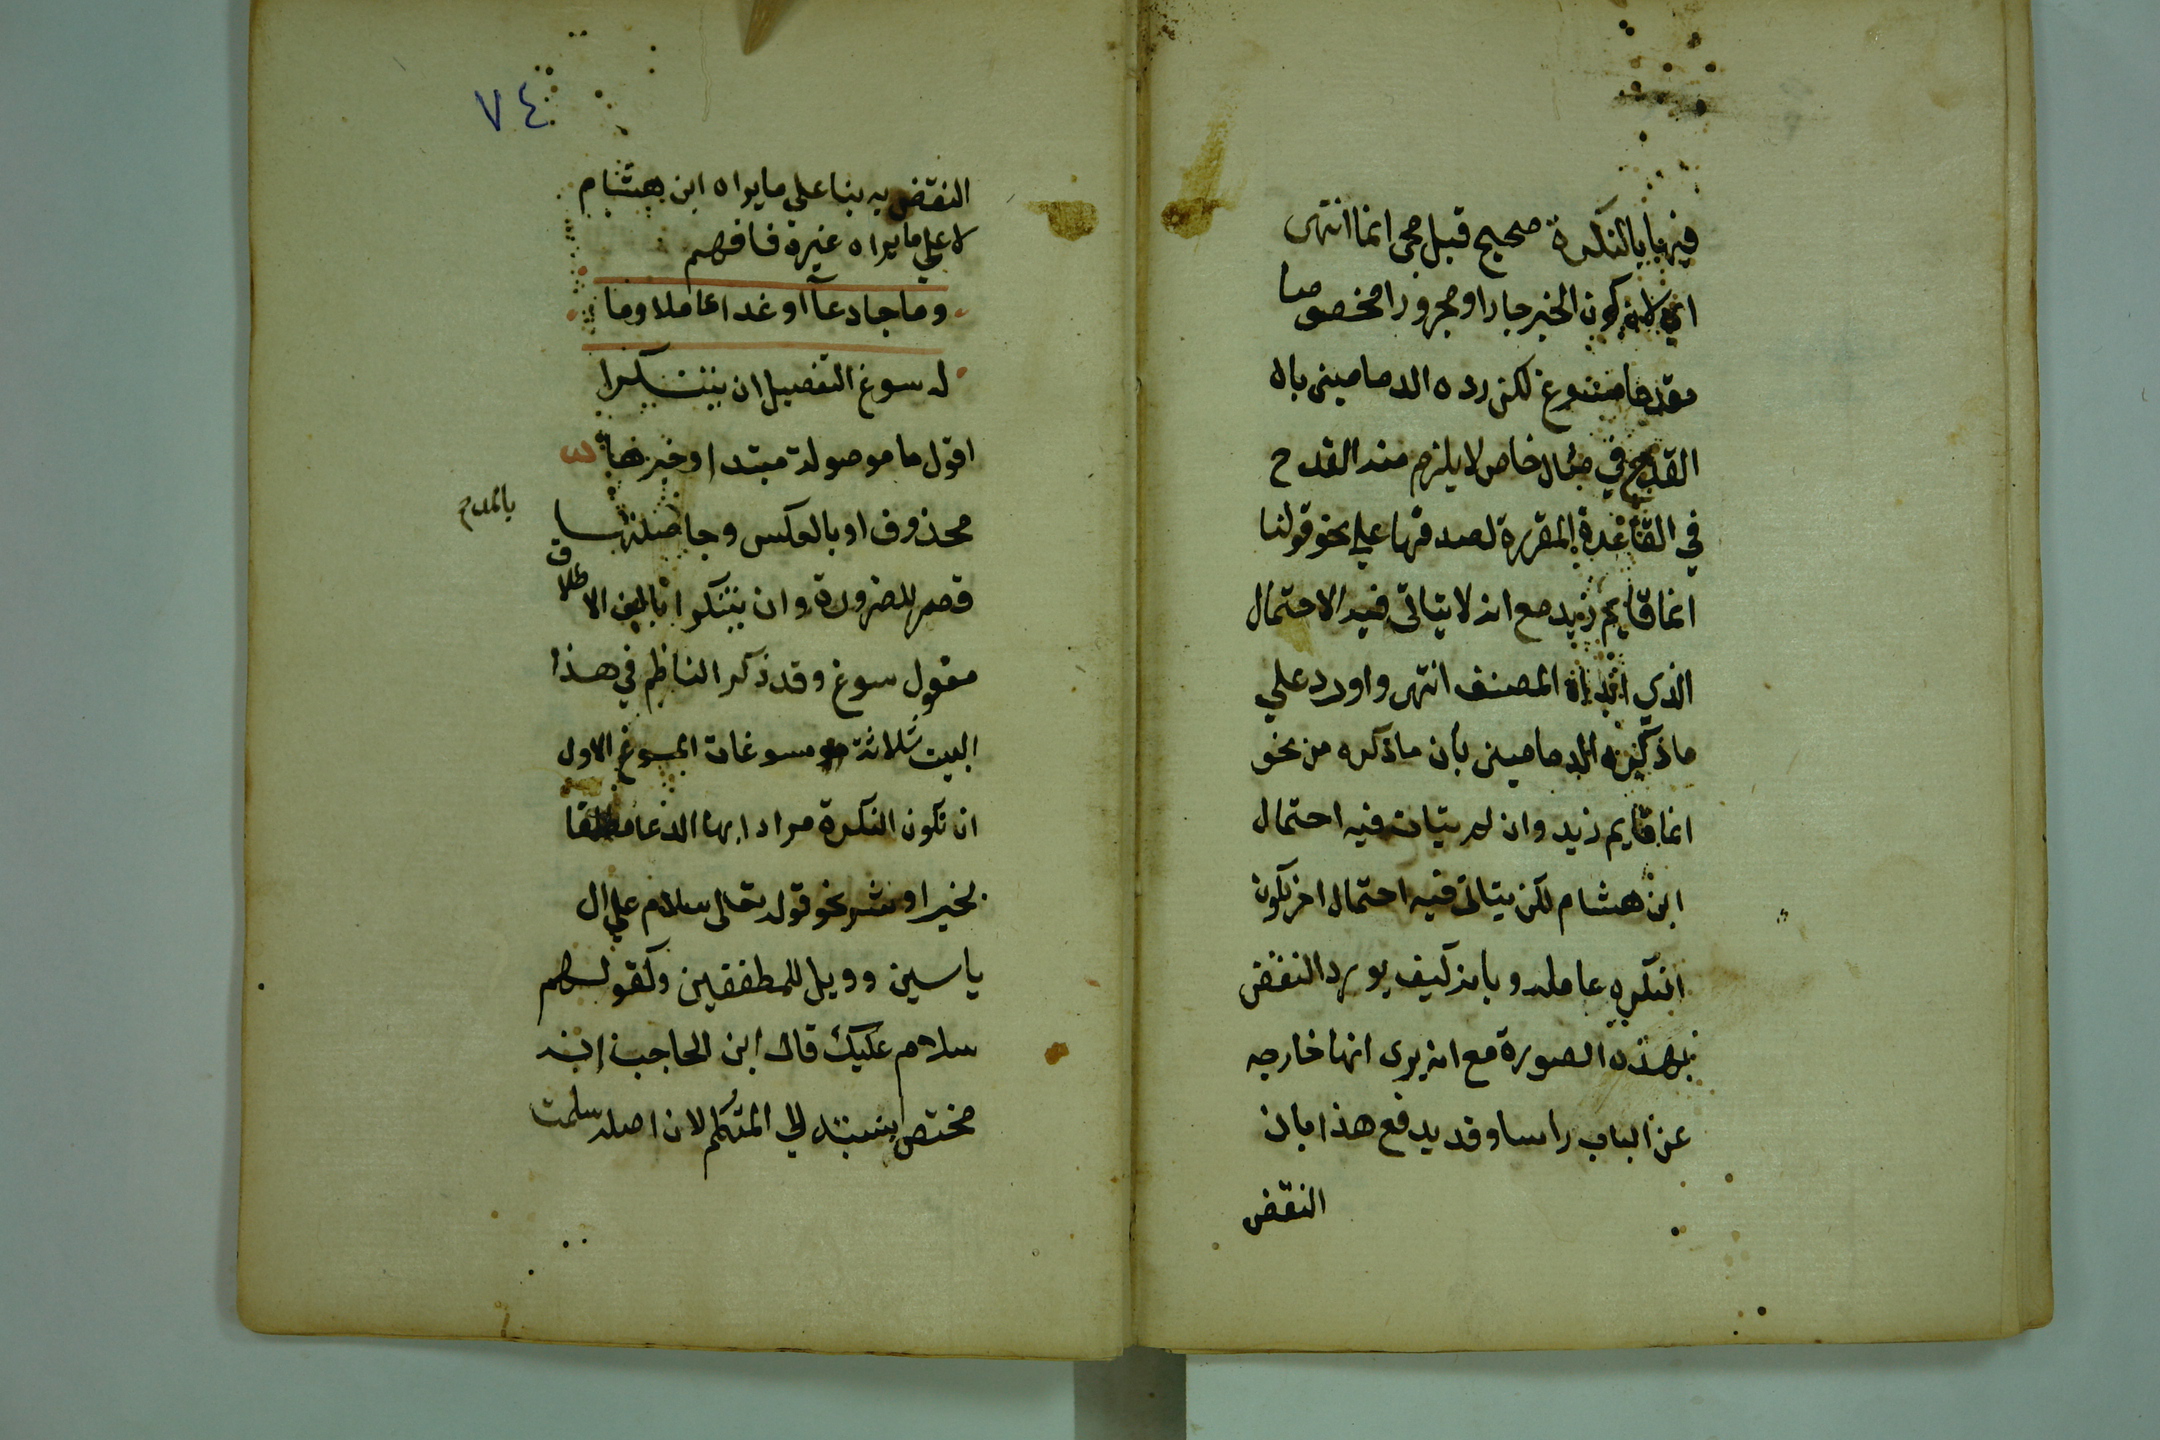 فيها بالنكرة صحيح قبل مجي انما انتهى
اي لان كون الخبر جارا ومجرورا مخصوصا
مقدما مسوغ لكن رده الدماميني بان
القدح في مثال خاص لا يلزم منه القدح
في القاعدة المقررة لصدقها على نحو قولنا
انما قايم زيد مع انه لا يتاتى فيه الاحتمال
الذي ابداه المصنف انتهى واورد علي
ما ذكره الدماميني بان ما ذكره من نحو
انما قايم زيد وان لم يتات فيه احتمال
ابن هشام لكن يتاتى فيه احتمال اخر بكون
النكره عامله وبانه كيف يورد النقض
بهذه الصورة مع انه يرى انها خارجه
عن الباب راسا وقد يدفع هذا بان
النقض
٧٤
النقض به بنا علي ما يراه ابن هشام
لا علي ما يراه غيره فافهم
وما جا دعآ او غدا عاملا وما
له سوغ التفصيل ان يتنكرا
اقول ما موصولة مبتدا وخبرها
محذوف او بالعكس وجا صلتها
بالمدح
قصر للضرورة وان يتنكرا بالف الاطلاق
مقول سوغ وقد ذكر الناظم في هذا
البيت ثلاثة مسوغات المسوغ الاول
ان تكون النكرة مرادا بها الدعا مطلقا
بخير او بشر نحو قوله تعالى سلام علي ال
ياسين وويل للمطففين وكقولهم
سلام عليك قال ابن الحاجب انه
مختص بنسبته الي المتكلم لان اصله سلمت